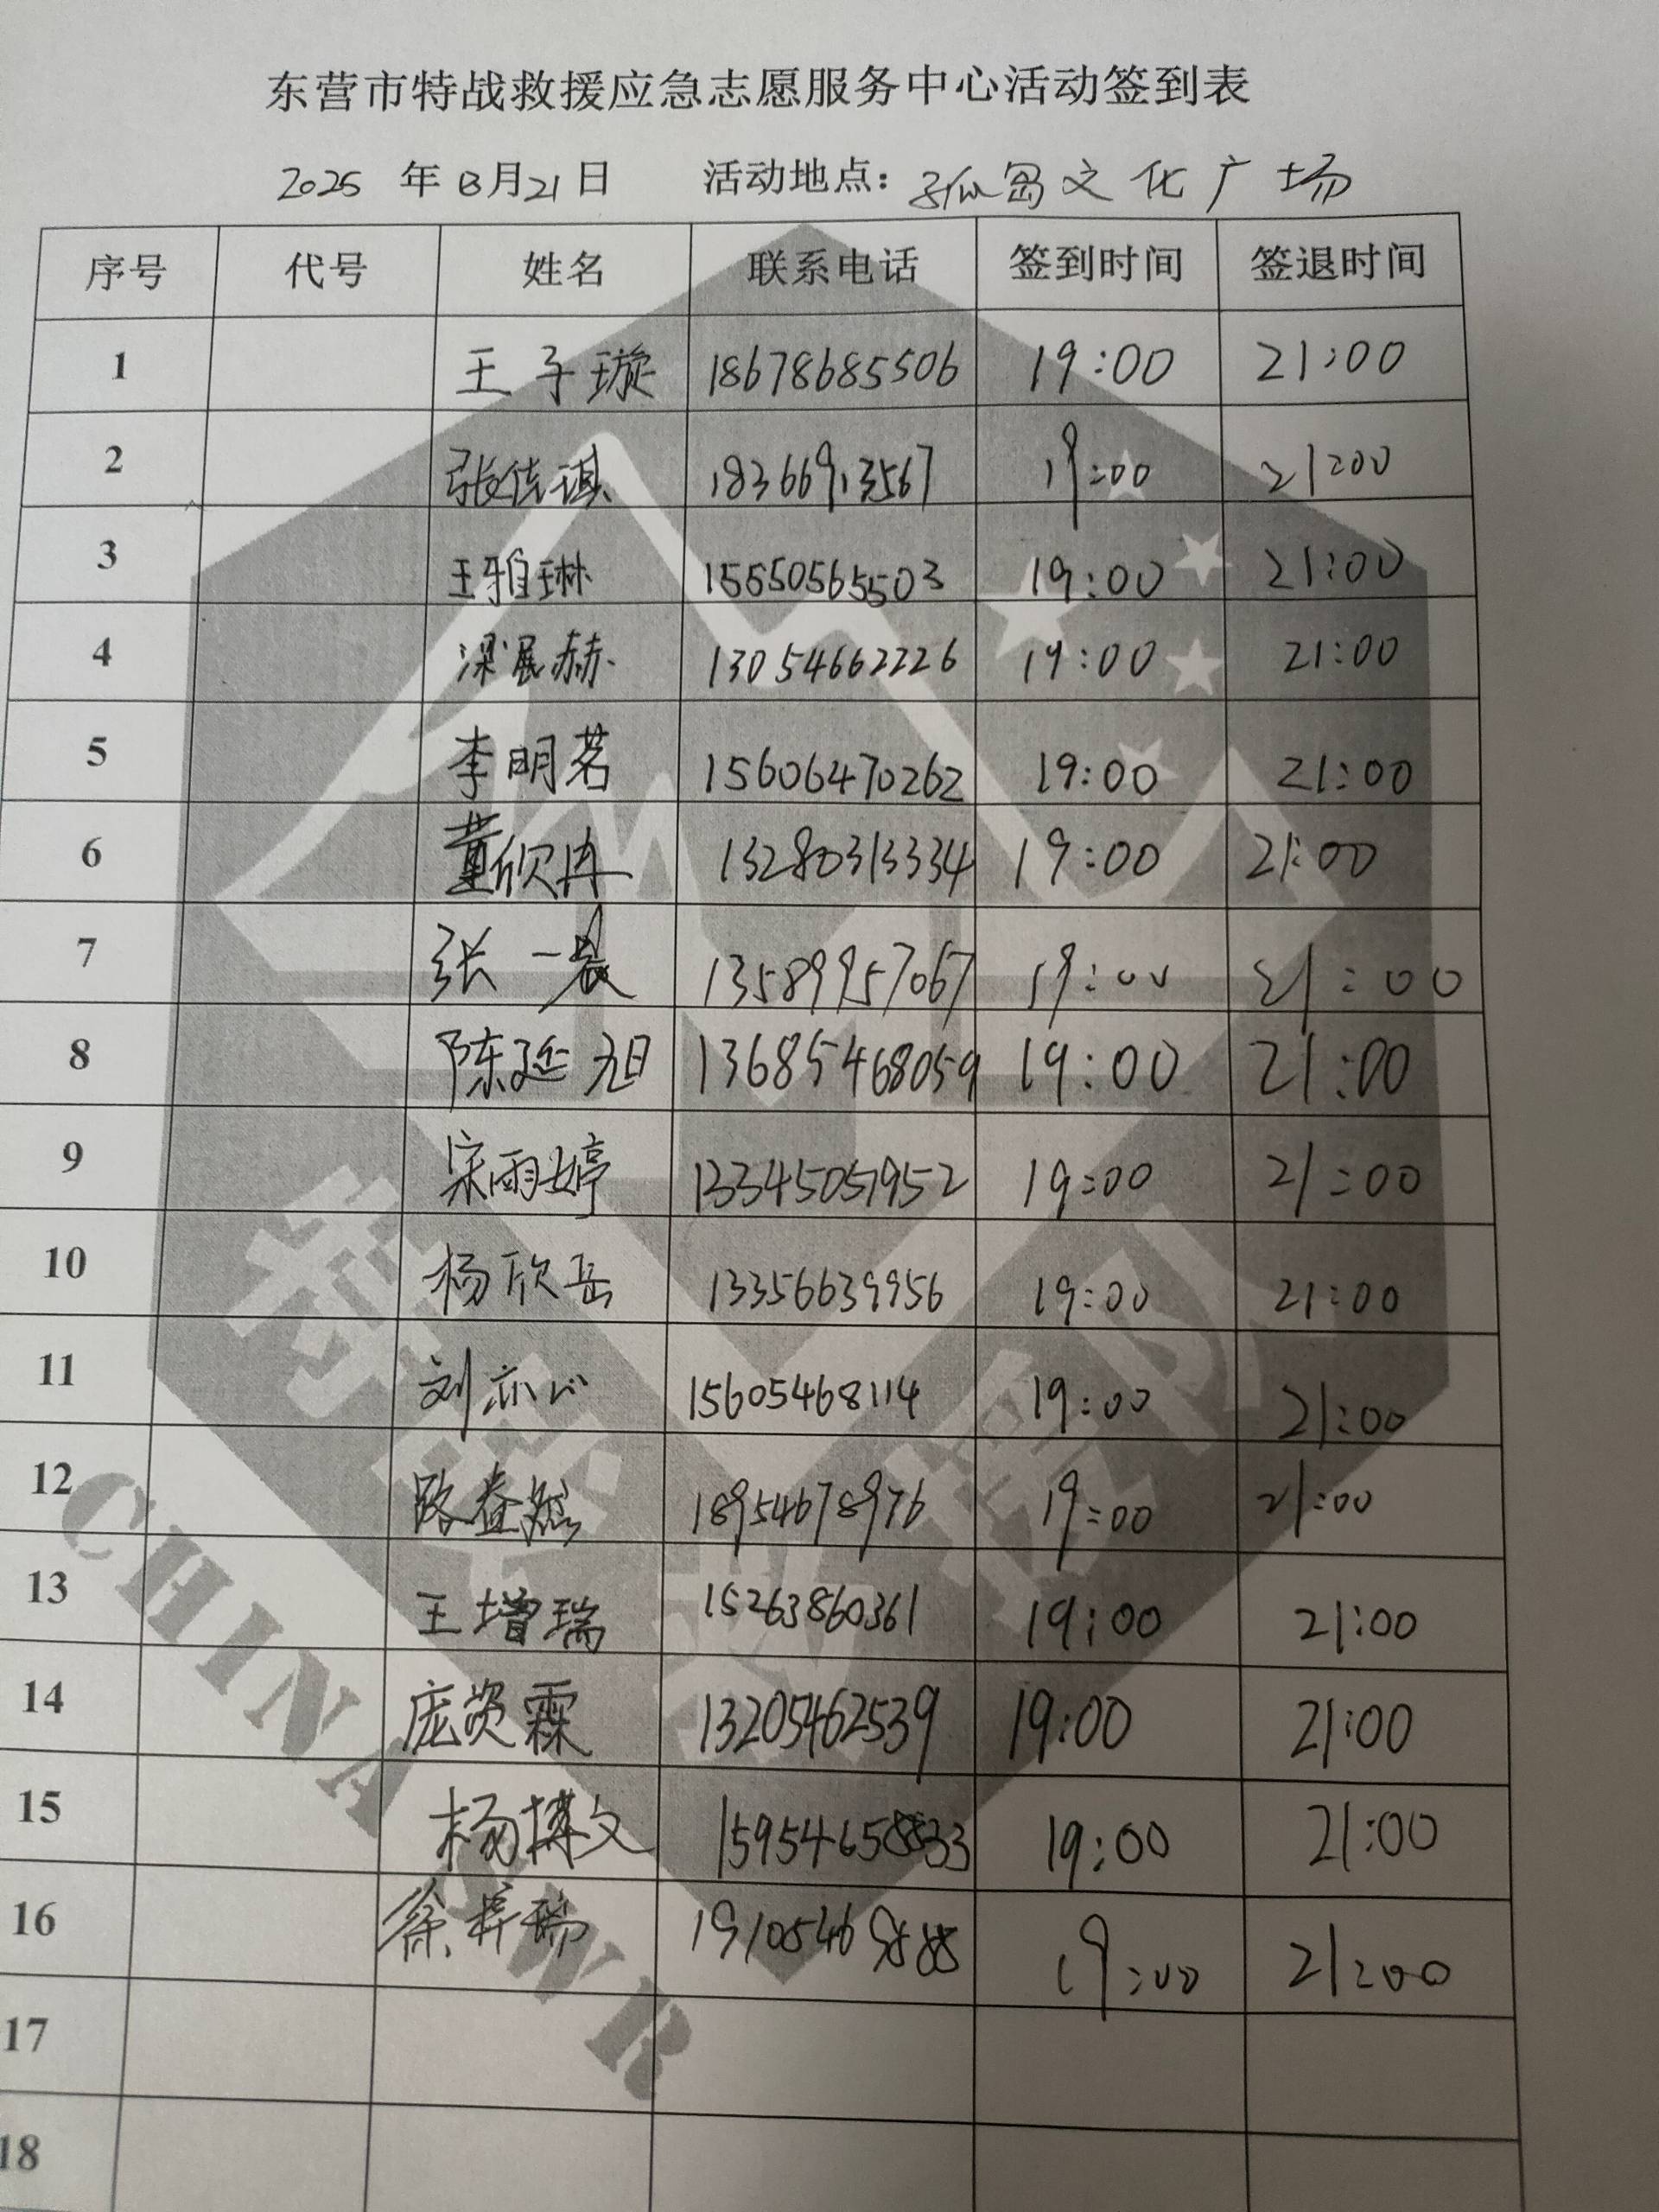 东营市特战救援应急志愿服务中心活动签到表
2025 年 8月21日 活动地点：孤岛文化广场
序号 代号 姓名 联系电话 签到时间 签退时间
1 王子璇 18678685506 19:00 21:00
2 张佳琪 18366913567 19:00 21:00
3 王雅琳 15550565503 19:00 21:00
4 梁展赫 13054662226 19:00 21:00
5 李明茗 15606470262 19:00 21:00
6 董欣冉 13280313334 19:00 21:00
7 张一晨 13589957067 19:00 21:00
8 陈延旭 13685468059 19:00 21:00
9 宋雨婷 13345051952 19:00 21:00
10 杨欣岳 13356639956 19:00 21:00
11 刘亦心 15605468114 19:00 21:00
12 路 18954678976 19:00 21:00
13 王增瑞 15263860361 19:00 21:00
14 庞炎霖 13205462539 19:00 21:00
15 杨博文 19:00 21:00
16 徐梓瑞 19:00 21:00
17
18
特战救援队
CHINA SWR